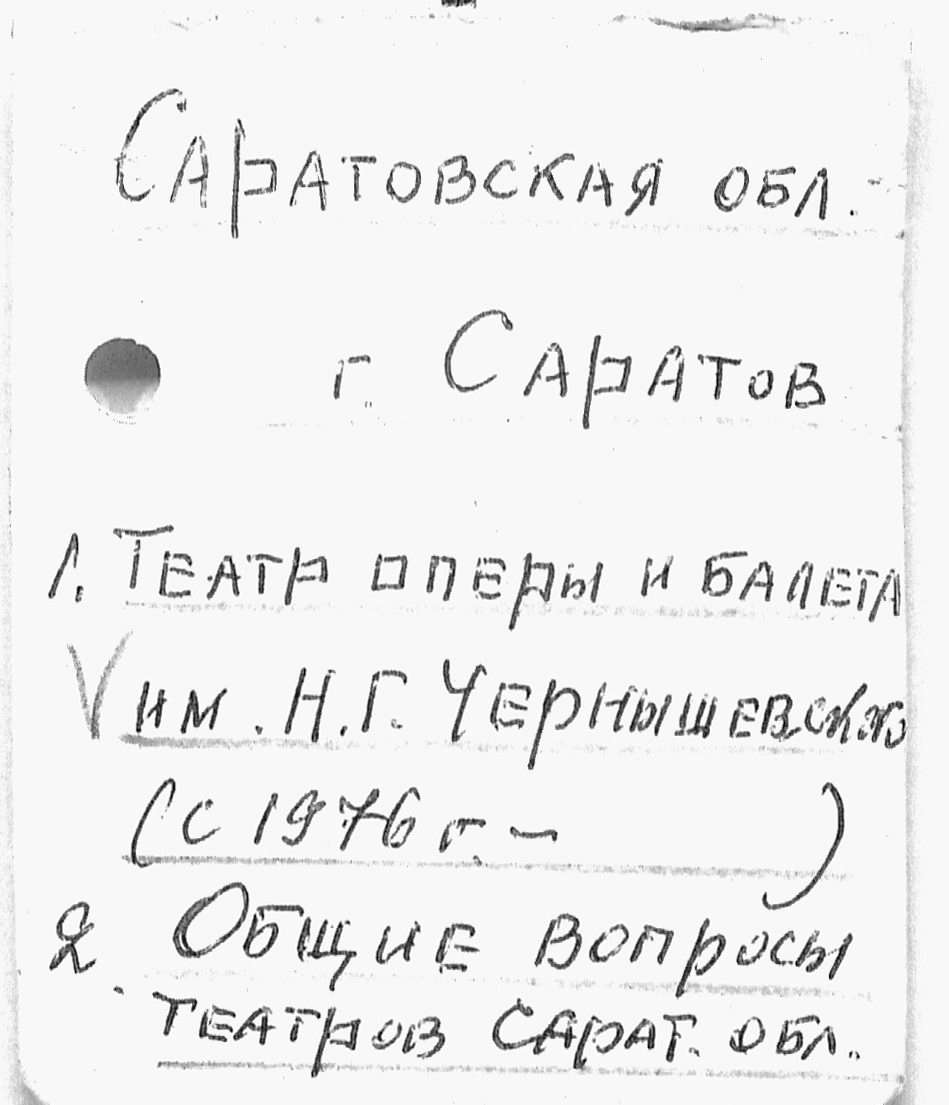 Саратовская обл.
г. Саратов
1. Театр оперы и балета
им. Н.Г. Чернышевского
(с 1976 г. – )
2. Общие вопросы
театров Сарат. обл.